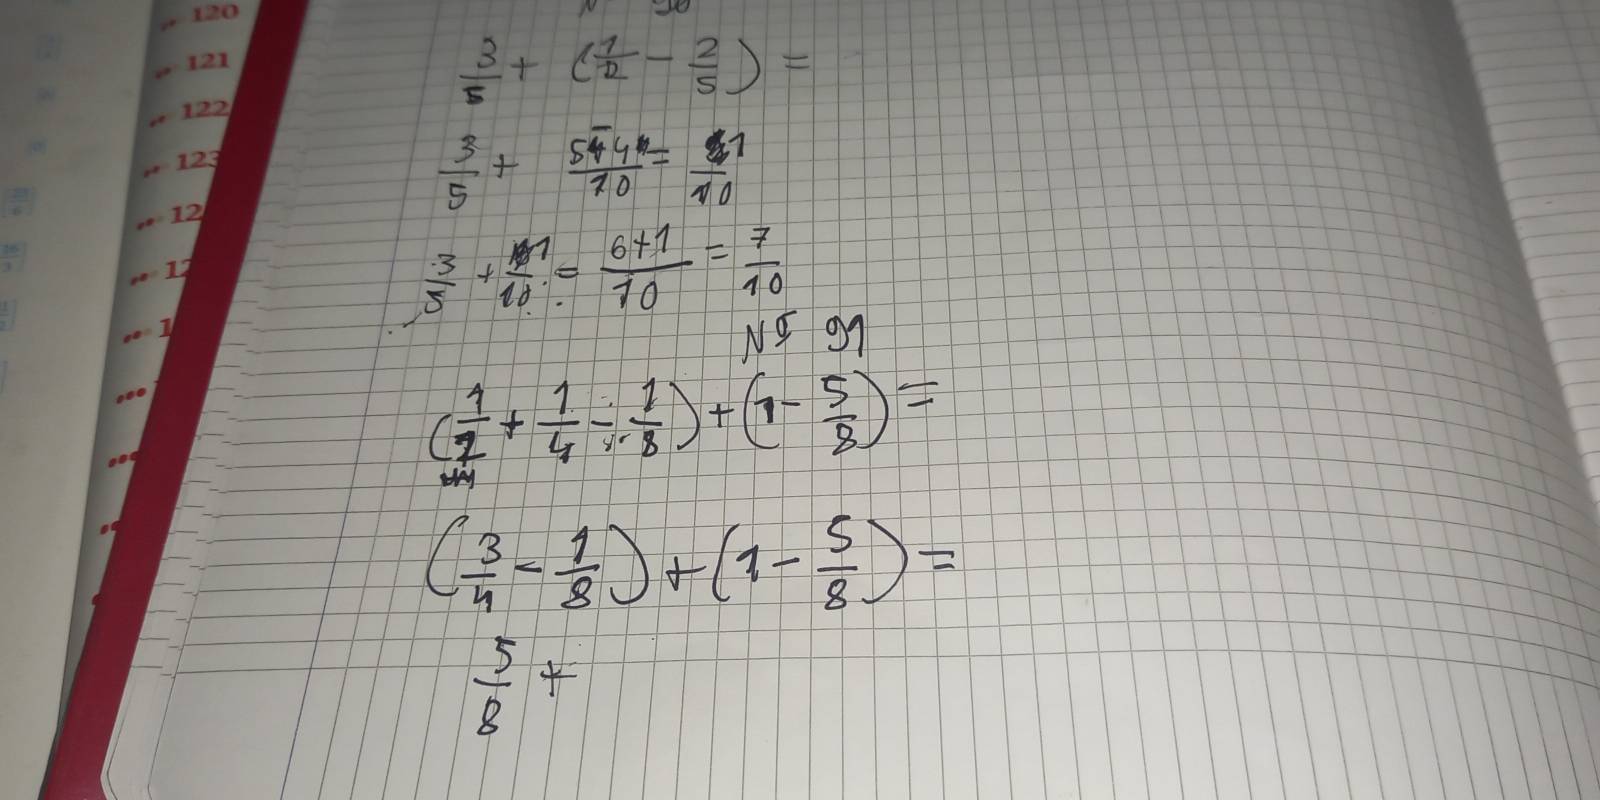 120
121
122
123
12
12
1
N° 90
3/5 + (1/2 - 2/5) =
3/5 + 5-4/10 = 1/10
3/5 + 1/10 = 6+1/10 = 7/10
N° 91
(1/2 + 1/4 - 1/8) + (1 - 5/8) =
(3/4 - 1/8) + (1 - 5/8) =
5/8 +